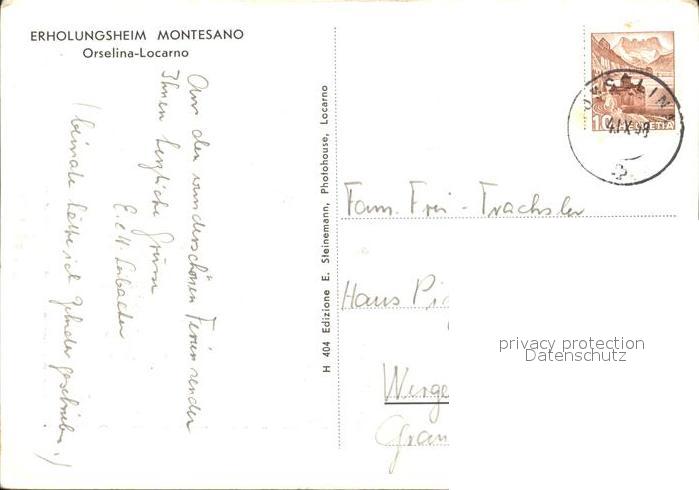 ERHOLUNGSHEIM MONTESANO
Orselina-Locarno
Aus den wunderschönen Ferien senden
Ihnen herzliche Grüsse
E. + H. Leibacher
(beinahe hätte ich Zehnder geschrieben!)
H 404 Edizione E. Steinemann, Photohouse, Locarno
10 HELVETIA
ORSELINA
4.IX.58
Fam. Frei - Trachsler
Haus Pi
Werge
Gran
privacy protection
Datenschutz